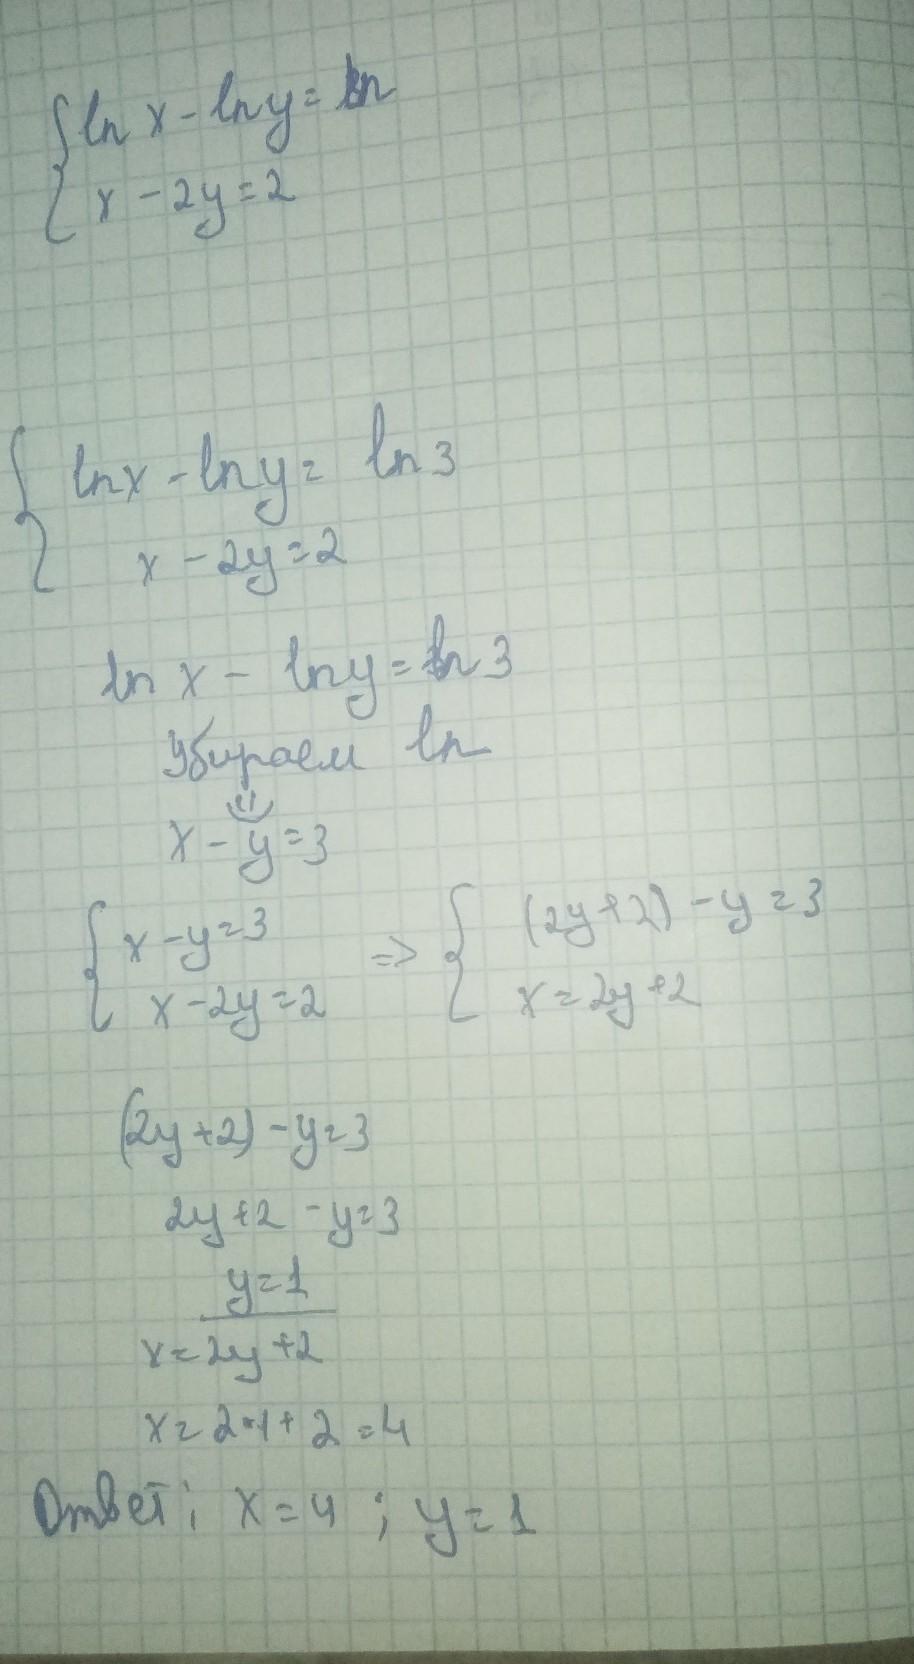 ln x - ln y = ln
x - 2y = 2
ln x - ln y = ln 3
x - 2y = 2
ln x - ln y = ln 3
Убираем ln
x - y = 3
x - y = 3 => (2y + 2) - y = 3
x - 2y = 2 x = 2y + 2
(2y + 2) - y = 3
2y + 2 - y = 3
y = 1
x = 2y + 2
x = 2 · 1 + 2 = 4
Ответ: x = 4 ; y = 1